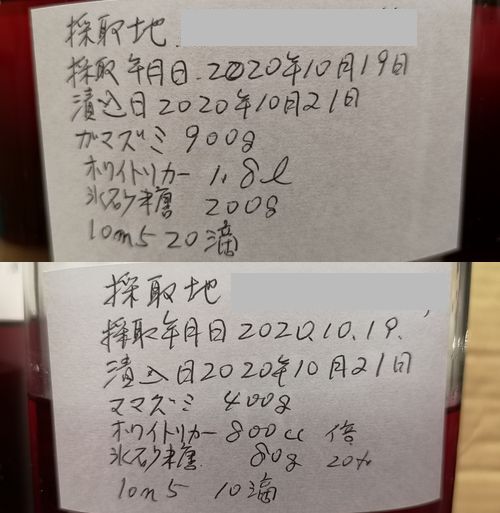 採取地
採取年月日 2020年10月19日
漬込日2020年10月21日
ガマズミ 900g
ホワイトリカー 1.8l
氷砂糖 200g
10m5 20滴
採取地
採取年月日 2020.10.19.
漬込日2020年10月21日
ママズミ 400g
ホワイトリカー 800cc 倍
氷砂糖 80g 20%
10m5 10滴